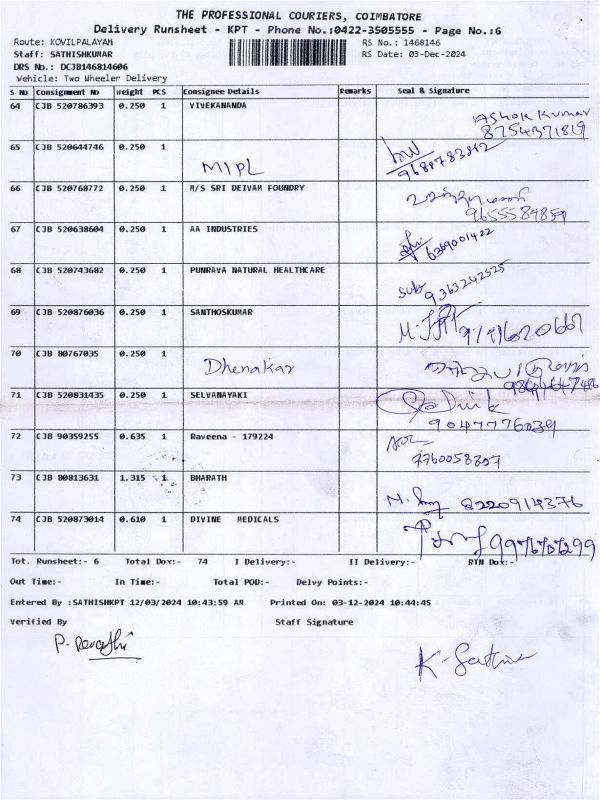 THE PROFESSIONAL COURIERS, COIMBATORE
Delivery Runsheet - KPT - Phone No.:0422-3505555 - Page No.:6
Route: KOVILPALAYAM RS No.: 1468146
Staff: SATHISHKUMAR RS Date: 03-Dec-2024
DRS No.: DCJB146814606
Vehicle: Two Wheeler Delivery
S No Consignment No Weight PCS Consignee Details Remarks Seal & Signature
64 CJB 520786393 0.250 1 VIVEKANANDA
Ashok Kumar
8754371819
65 CJB 520644746 0.250 1
MIPL 9688783812
66 CJB 520768772 0.250 1 M/S SRI DEIVAM FOUNDRY
9655589859
67 CJB 520638604 0.250 1 AA INDUSTRIES
6369001422
68 CJB 520743682 0.250 1 PUNRAVA NATURAL HEALTHCARE
9363242525
69 CJB 520876036 0.250 1 SANTHOSKUMAR
70 CJB 80767035 0.250 1
Dhenakar
71 CJB 520831435 0.250 1 SELVANAYAKI
9047776039
72 CJB 90359255 0.635 1 Raveena - 179224
7760058807
73 CJB 80813631 1.315 1 BHARATH
8220914376
74 CJB 520873014 0.610 1 DIVINE MEDICALS
Tot. Runsheet:- 6 Total Dox:- 74 I Delivery:- II Delivery:- RTN Dox:-
Out Time:- In Time:- Total POD:- Delvy Points:-
Entered By :SATHISHKPT 12/03/2024 10:43:59 AM Printed On: 03-12-2024 10:44:45
Verified By Staff Signature
P. Revathi